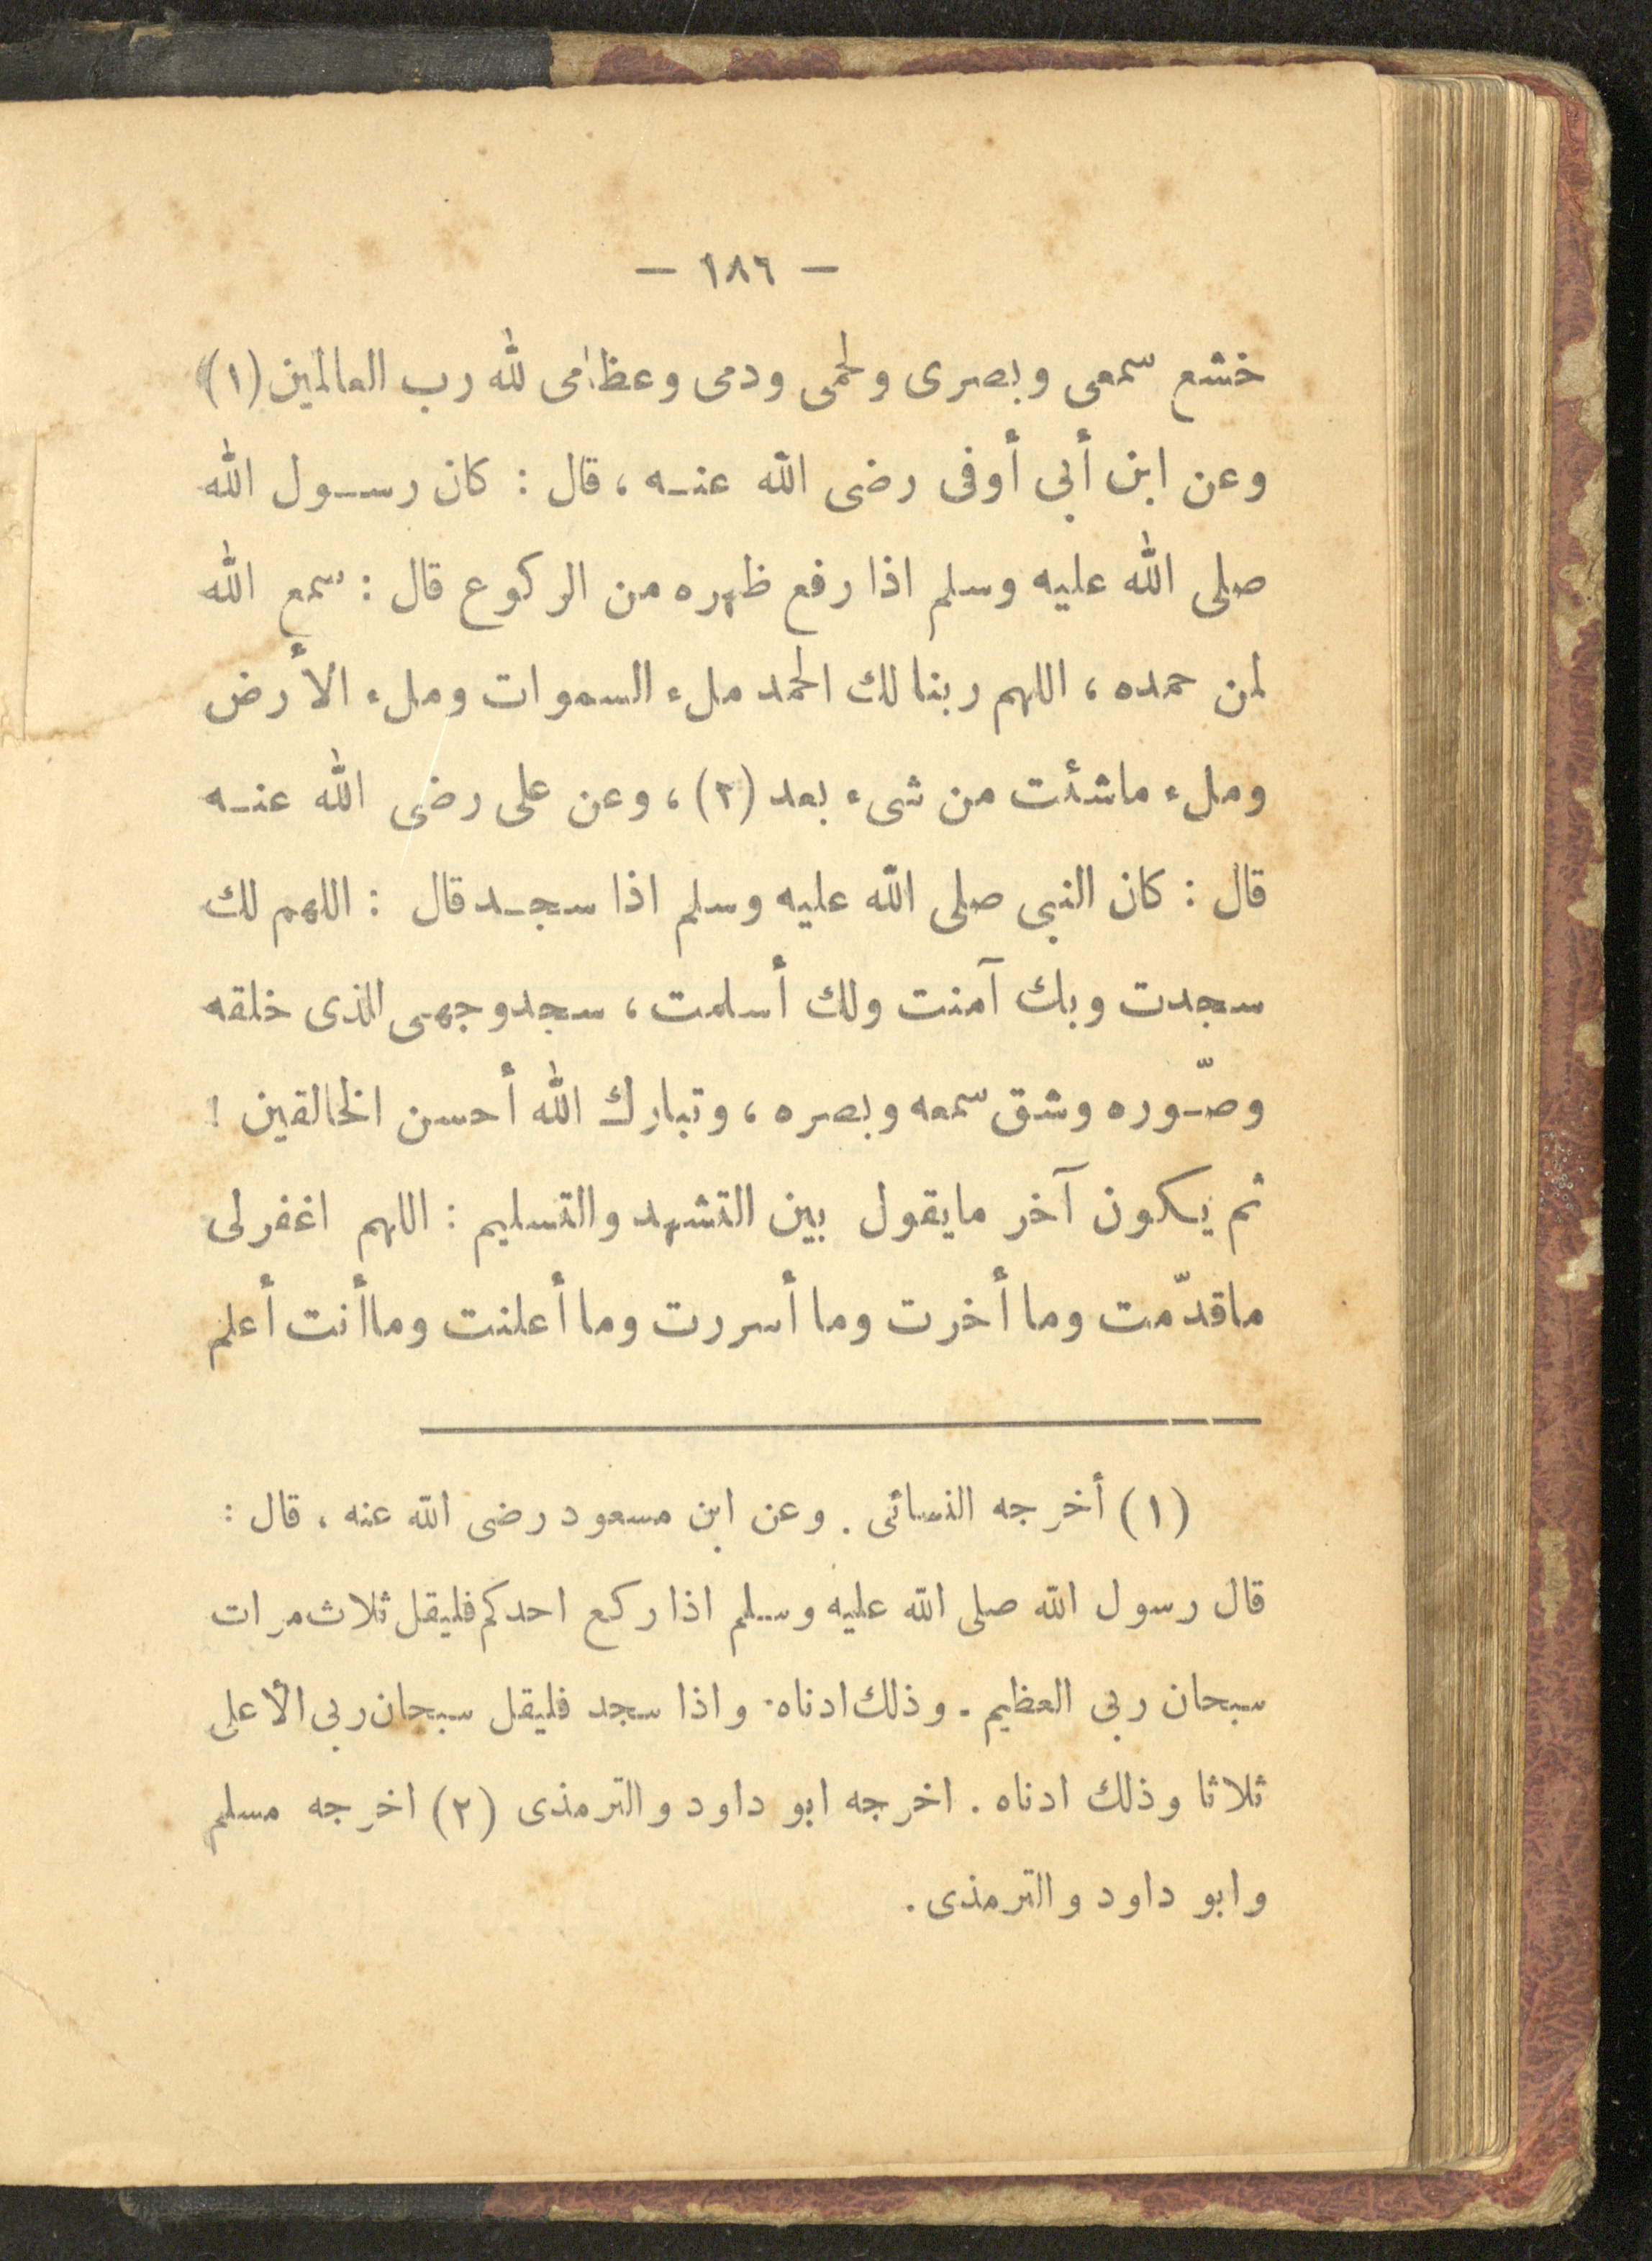 — ١٨٦ —
خشع سمعى وبصرى ولحمى ودمى وعظامى لله رب العالمين (١)
وعن ابن أبي أوفى رضى الله عنـه ، قال : كان رسـول الله
صلى الله عليه وسلم اذا رفع ظهره من الركوع قال : سمع الله
لمن حمده ، اللهم ربنا لك الحمد ملء السموات وملء الأرض
وملء ماشئت من شىء بعد (٢) ، وعن على رضى الله عنـه
قال : كان النبى صلى الله عليه وسلم اذا سجـد قال : اللهم لك
سجدت وبك آمنت ولك أسلمت ، سجدوجهى للذى خلقه
وصّـوره وشق سمعه وبصره ، وتبارك الله أحسن الخالقين !
ثم يكون آخر مايقول بين التشهد والتسليم : اللهم اغفرلى
ماقدّمت وما أخرت وما أسررت وما أعلنت وماأنت أعلم
(١) أخرجه النسائى . وعن ابن مسعود رضى الله عنه ، قال :
قال رسول الله صلى الله عليه وسلم اذا ركع احدكم فليقل ثلاث مرات
سبحان ربى العظيم . وذلك ادناه . واذا سجد فليقل سبحان ربى الأعلى
ثلاثا وذلك ادناه . اخرجه ابو داود والترمذى (٢) اخرجه مسلم
وابو داود والترمذى .